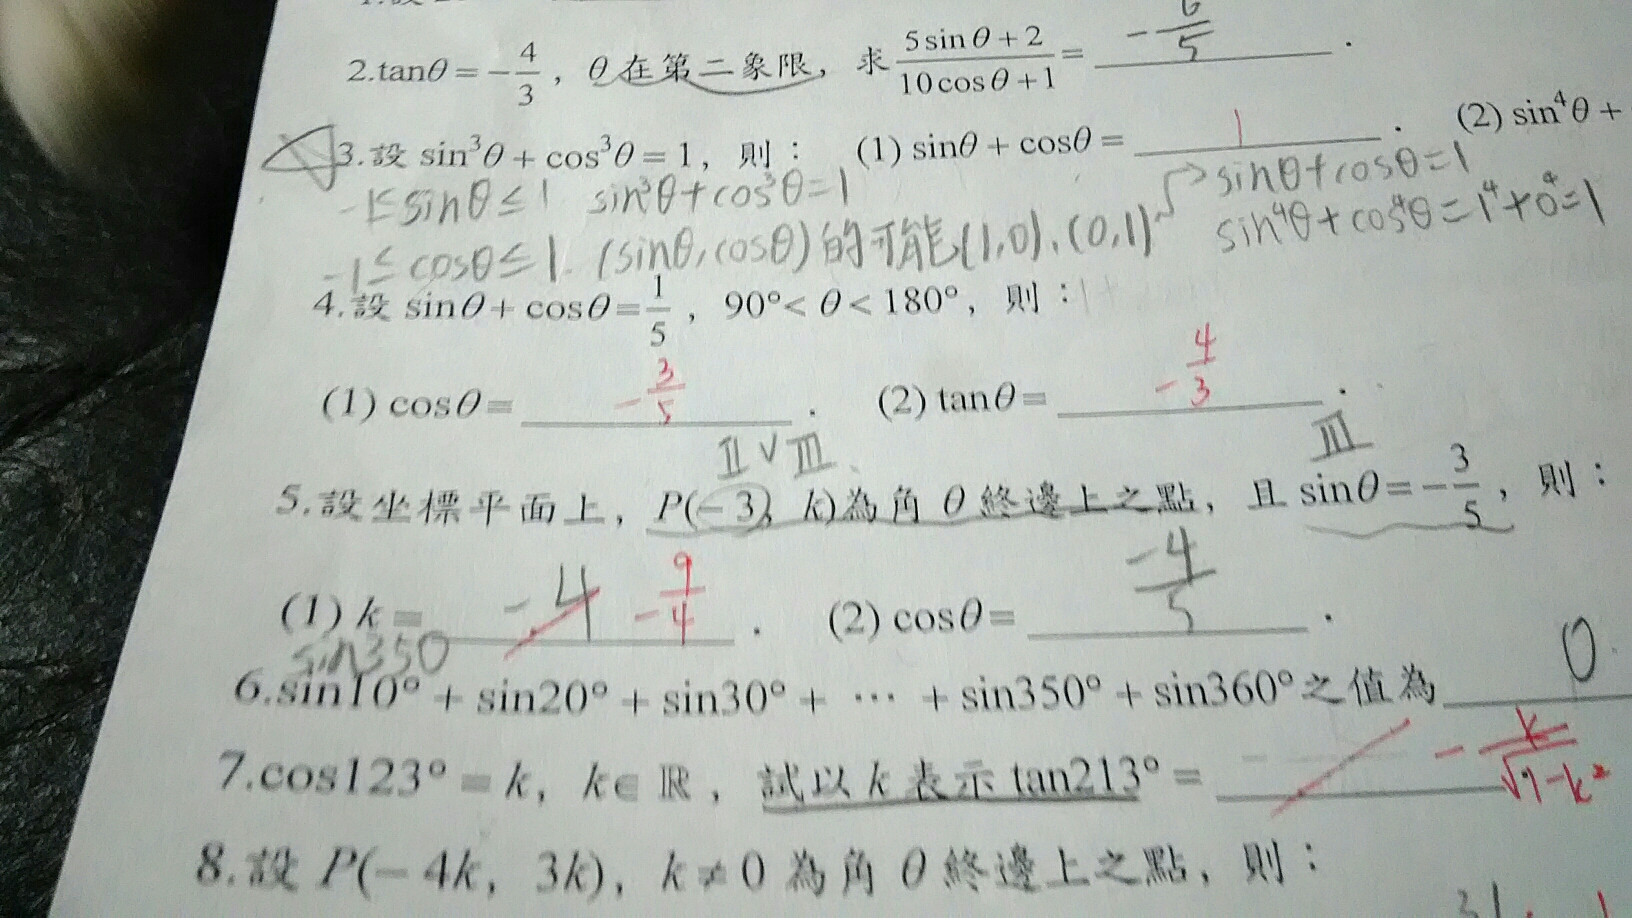 2.tanθ = -4/3, θ在第二象限, 求 (5sinθ+2)/(10cosθ+1) = -6/5.
3.設 sin³θ + cos³θ = 1, 則: (1) sinθ + cosθ = 1. (2) sin⁴θ +
-1≤sinθ≤1 sin³θ+cos³θ=1 → sinθ+cosθ=1
-1≤cosθ≤1. (sinθ,cosθ)的可能(1,0).(0,1) sin⁴θ+cos⁴θ=1⁴+0⁴=1
4.設 sinθ + cosθ = 1/5, 90°< θ < 180°, 則:
(1) cosθ = -3/5. (2) tanθ = -4/3.
II V III III
5.設坐標平面上, P(-3, k)為角 θ 終邊上之點, 且 sinθ = -3/5, 則:
(1) k = -4 -9/4. (2) cosθ = -4/5.
sin350
6.sin10° + sin20° + sin30° + … + sin350° + sin360°之值為 0.
7.cos123° = k, k∈ℝ, 試以 k 表示 tan213° = -k/√1-k²
8.設 P(-4k, 3k), k≠0 為角 θ 終邊上之點, 則: